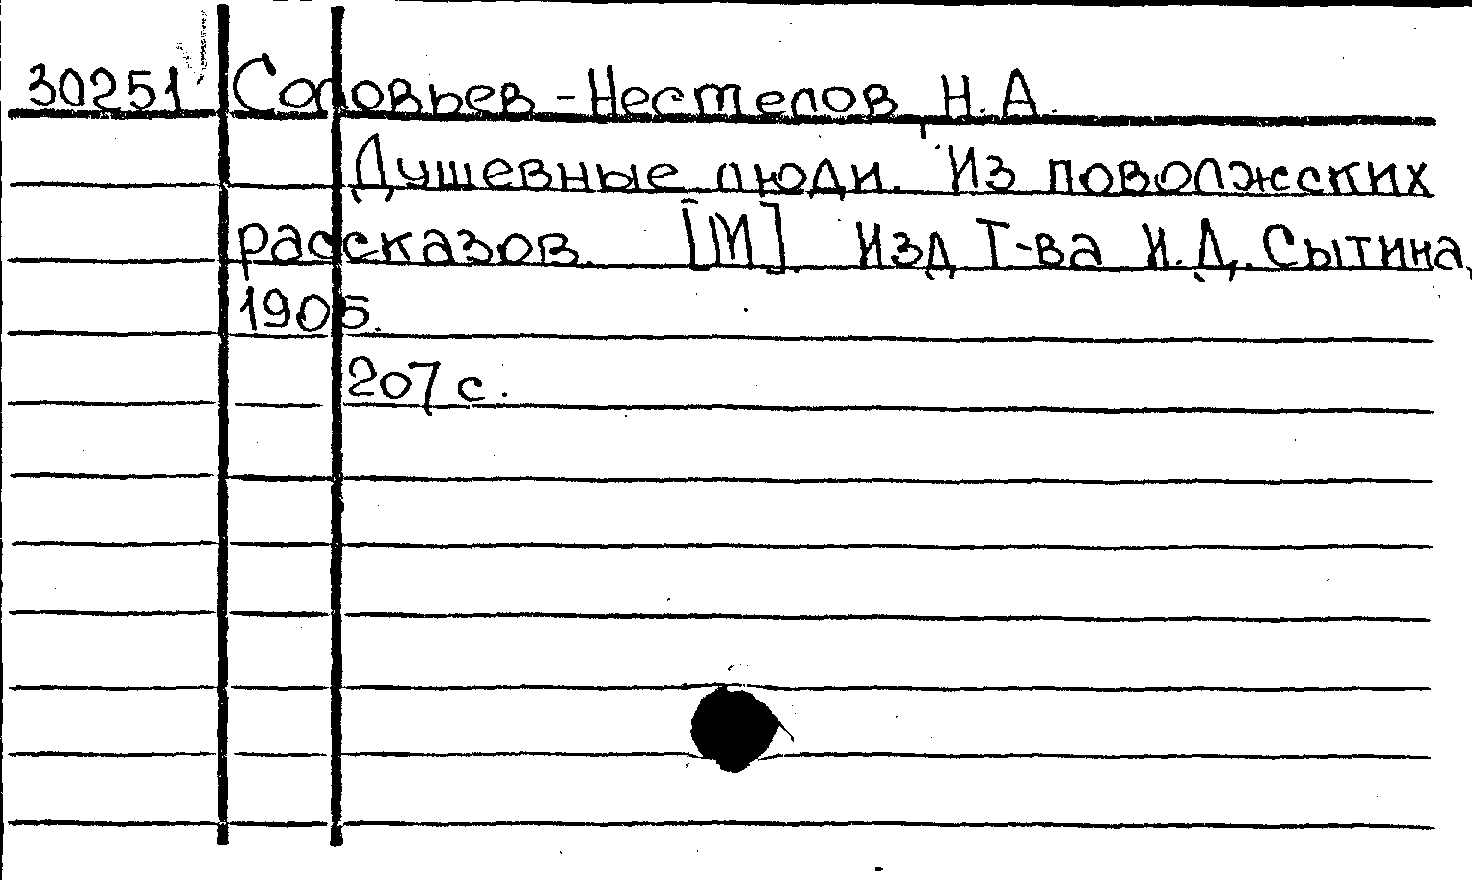 30251 Соловьев-Нестелов, Н.А.
Душевные люди. Из поволжских
рассказов. [М]. Изд Т-ва И.Д. Сытина,
1905.
207 с.